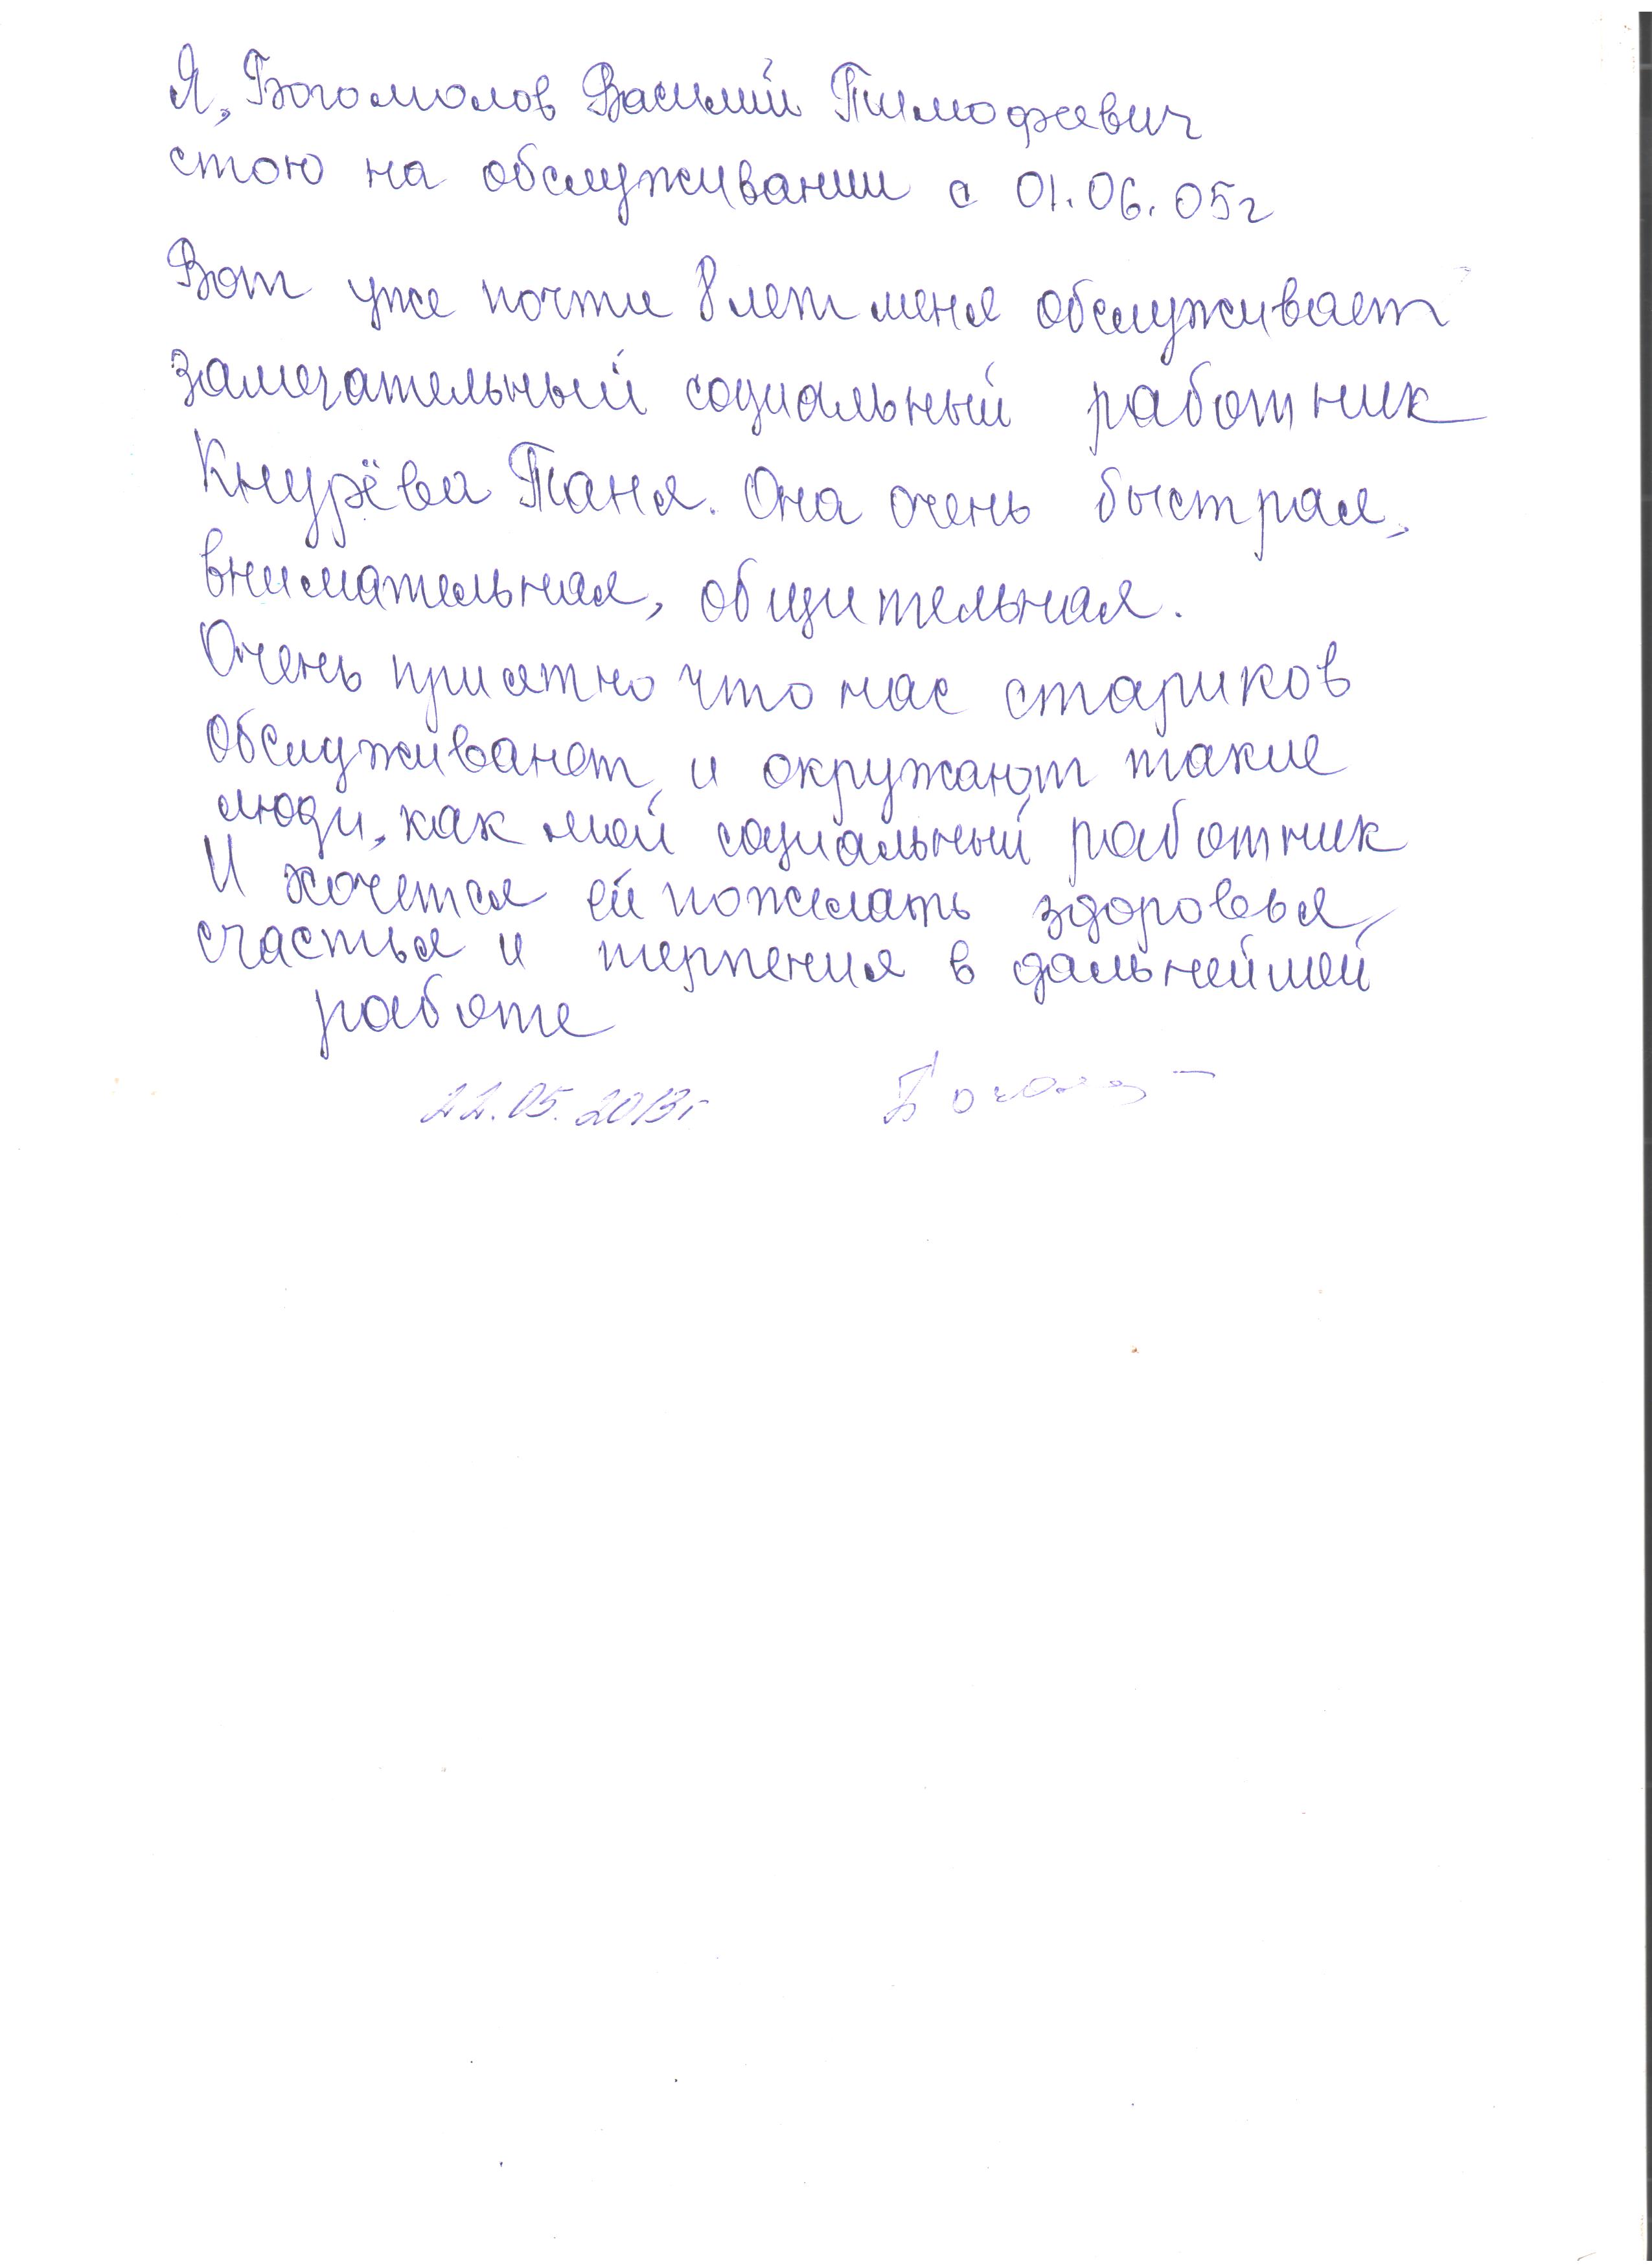 Я, Богомолов Василий Тимофеевич
стою на обслуживании с 01.06.05г
Вот уже почти 8 лет меня обслуживает
замечательный социальный работник
Кнурёва Таня. Она очень быстрая,
внимательная, общительная.
Очень приятно что нас стариков
обслуживают, и окружают такие
люди, как мой социальный работник
И хочется ей пожелать здоровья,
счастья и терпения в дальнейшей
работе
22.05.2013г